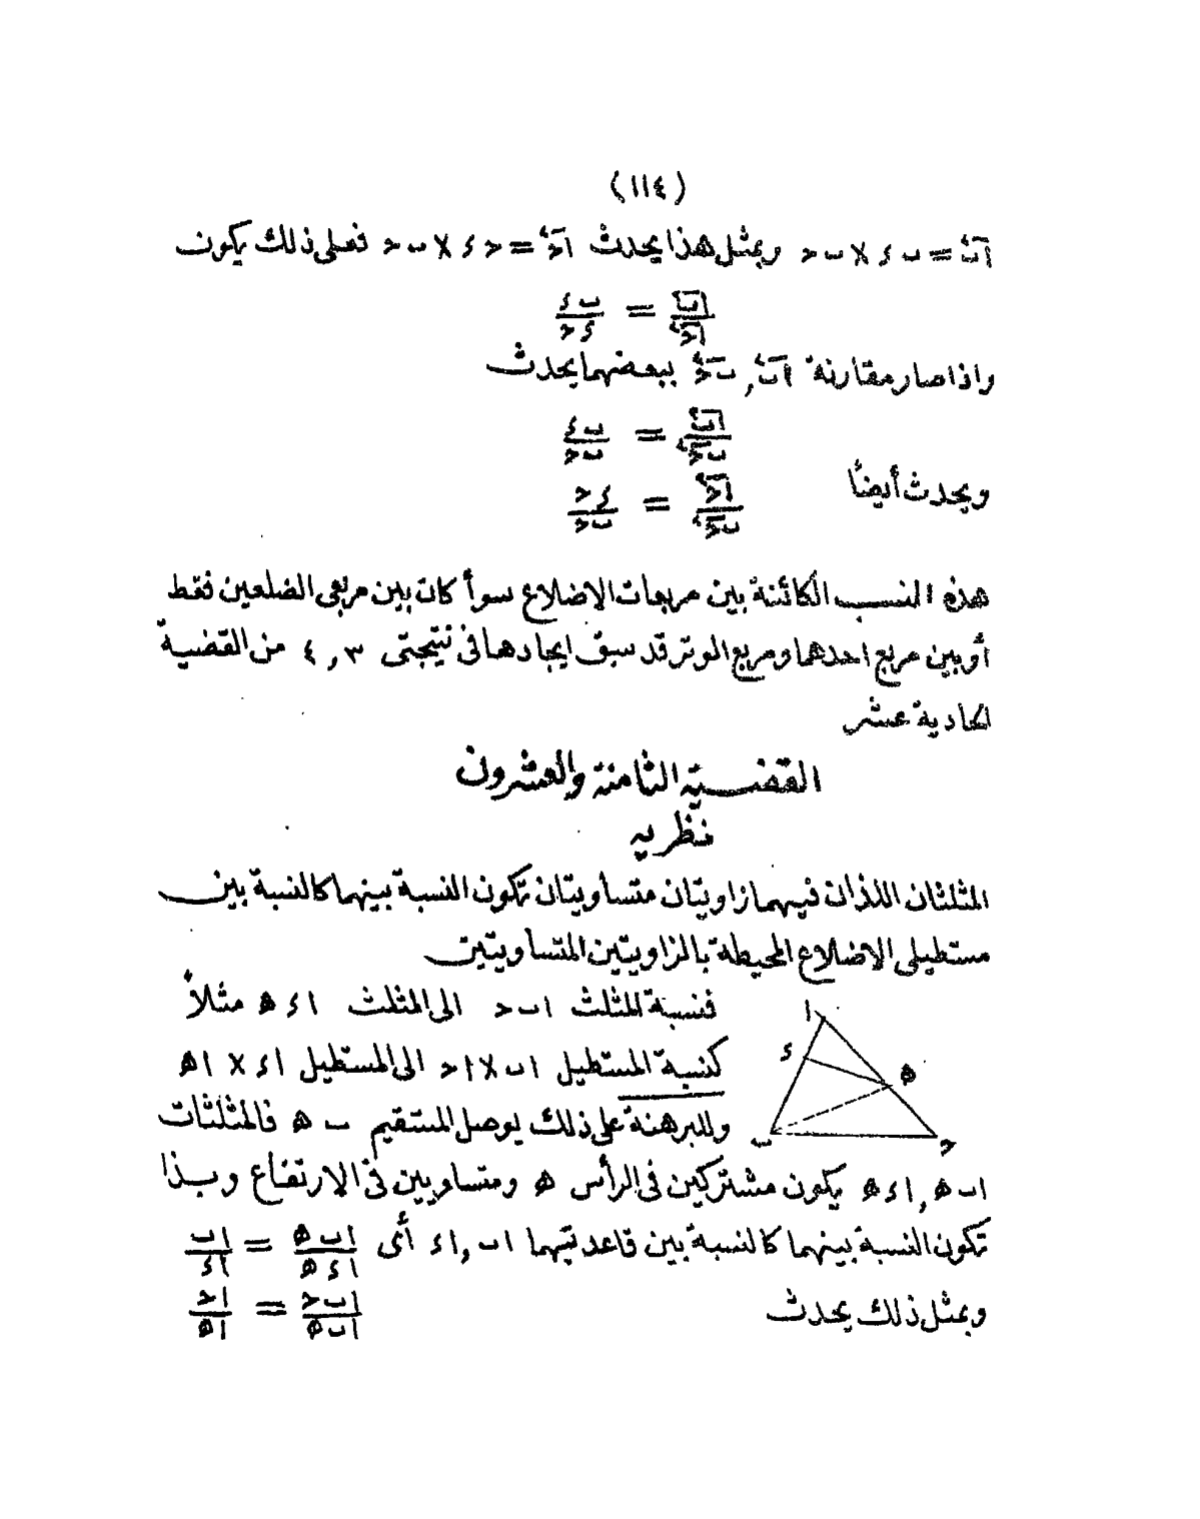 (١١٤)
اب٢ = ب د × ب ح وبمثل هذا يحدث اح٢ = ح د × ب ح فعلى ذلك يكون
اب٢/اح٢ = ب د/د ح
واذا صار مقارنة اب٢ , ب ح٢ ببعضهما يحدث
اب٢/ب ح٢ = ب د/ب ح
ويحدث أيضاً اح٢/ب ح٢ = د ح/ب ح
هذه النسب الكائنة بين مربعات الاضلاع سوأ كان بين مربعى الضلعين فقط
أو بين مربع احدهما ومربع الموتر قد سبق ايجادها فى نتيجتى ٣ , ٤ من القضية
الحادية عشر
القضية الثامنة والعشرون
نظريه
المثلثان اللذان فيهما زاويتان متساويتان تكون النسبة بينهما كالنسبة بين
مستطيلى الاضلاع المحيطة بالزاويتين المتساويتين
فنسبة المثلث ا ب ح الى المثلث ا د ه مثلاً
كنسبة المستطيل ا ب × ا ح الى المستطيل ا د × ا ه
وللبرهنة على ذلك يوصل المستقيم ب ه فالمثلثات
ا
د
ه
ب
ح
ا ب ه , ا د ه يكون مشتركين فى الرأس ه ومتساويين فى الارتفاع وبذا
تكون النسبة بينهما كالنسبة بين قاعدتيهما ا ب , ا د أى ا ب ه/ا د ه = ا ب/ا د
وبمثل ذلك يحدث ا ب ح/ا ب ه = ا ح/ا ه